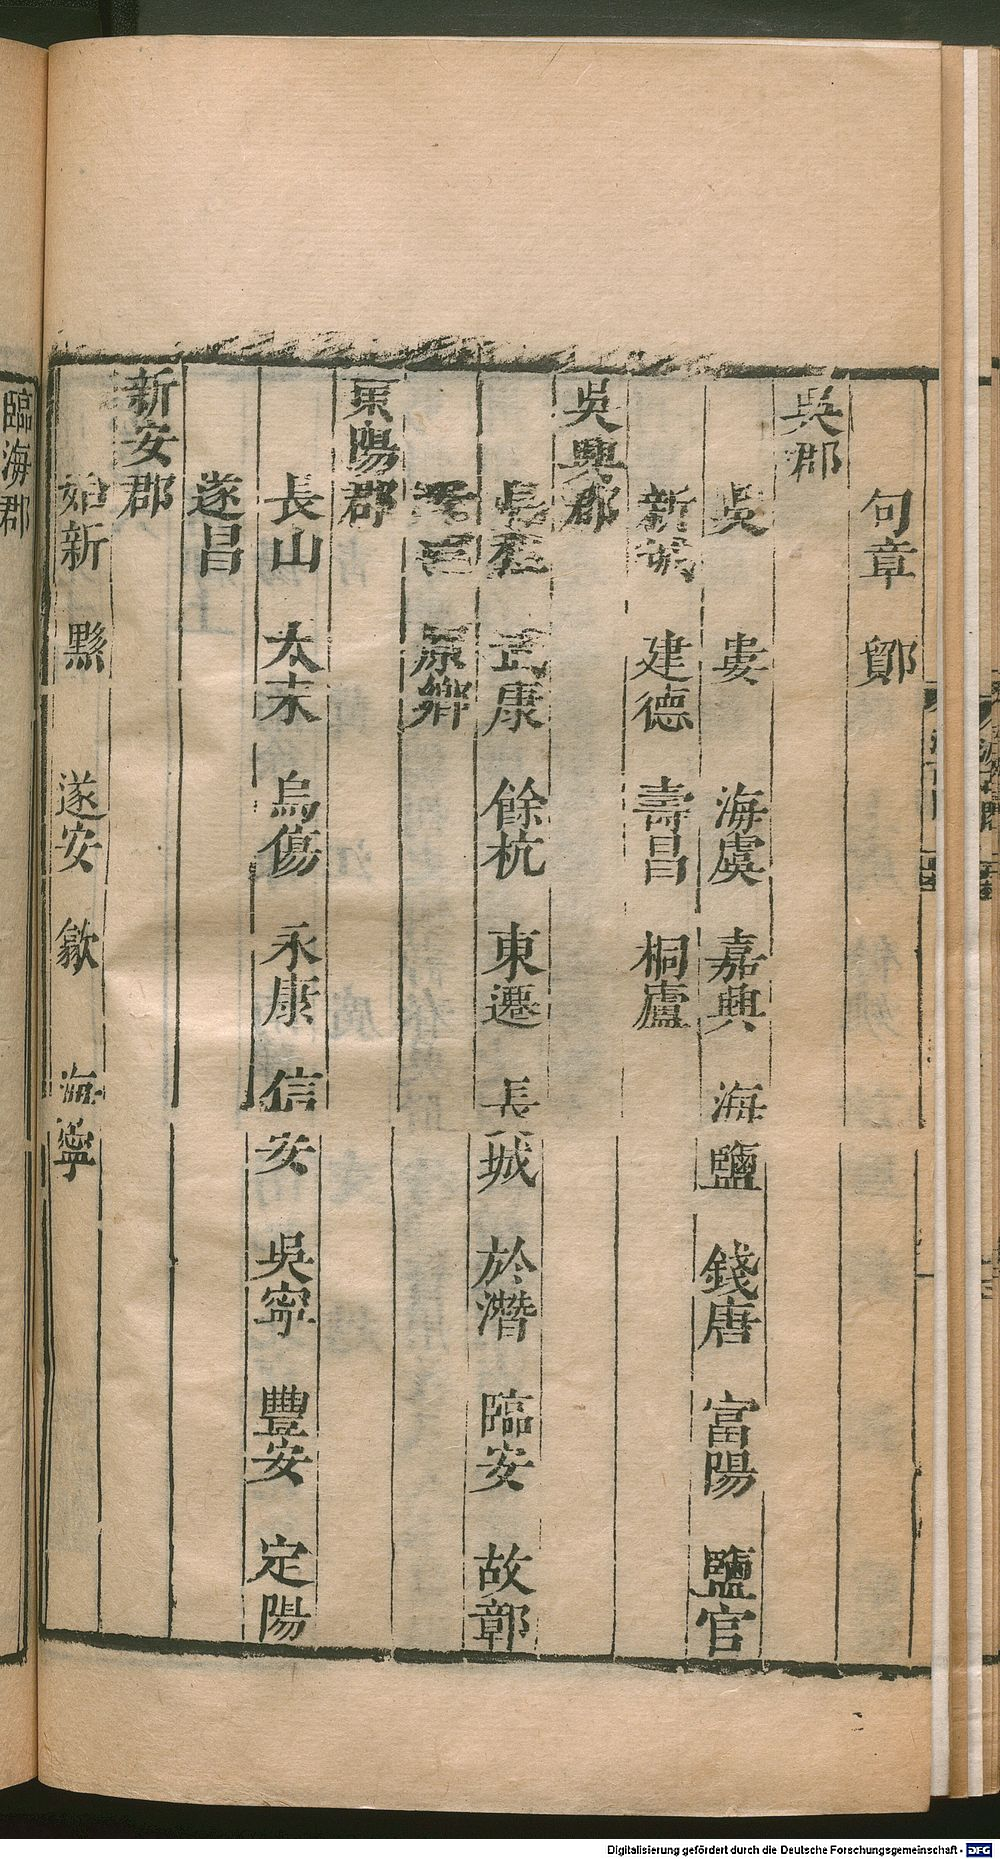 句章　鄮
吳郡
吳　婁　海虞　嘉興　海鹽　錢唐　富陽　鹽官
新城　建德　壽昌　桐廬
吳興郡
烏程　武康　餘杭　東遷　長城　於潛　臨安　故鄣
安吉　原鄉
東陽郡
長山　太末　烏傷　永康　信安　吳寧　豐安　定陽
遂昌
新安郡
始新　黟　遂安　歙　海寧
臨海郡
Digitalisierung gefördert durch die Deutsche Forschungsgemeinschaft - DFG